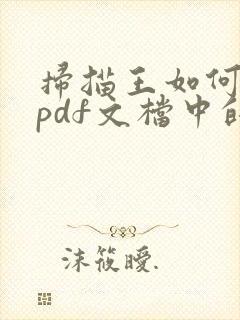 掃描王如何
pdf文檔中的
沫筱曖.